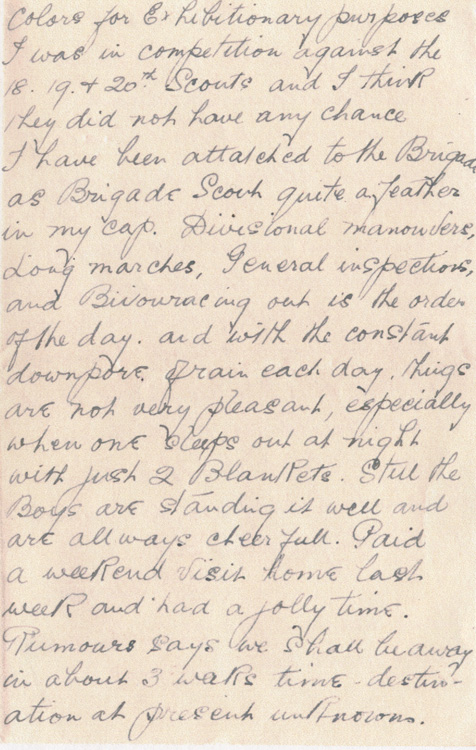 Colors for Exhibitionary purposes
I was in competition against the
18. 19. + 20th Scouts and I think
they did not have any chance
I have been attatched to the Brigade
as Brigade Scout quite a feather
in my cap. Divisional manouvers,
Long marches, General inspections,
and Bivouracing out is the order
of the day. and with the constant
downpore of rain each day. things
are not very pleasant, especially
when one sleeps out at night
with just 2 Blankets. Still the
Boys are standing it well and
are allways cheerfull. Paid
a weekend visit home last
week and had a jolly time.
Rumours says we shall be away
in about 3 weeks time - destin-
ation at present unknown.